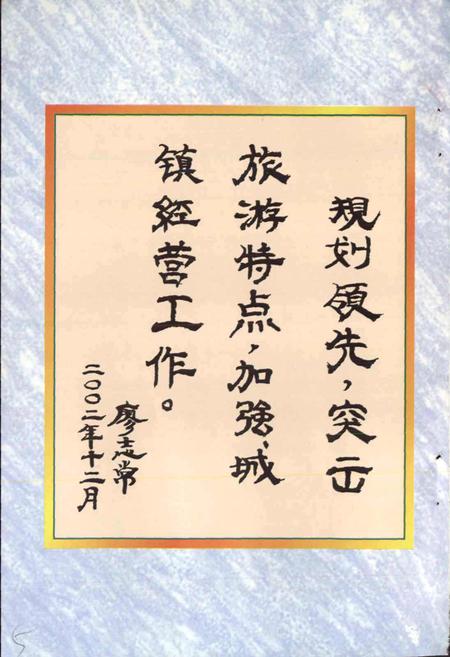 规划领先，突出
旅游特点，加强城
镇经营工作。
廖志常
二〇〇二年十二月
5